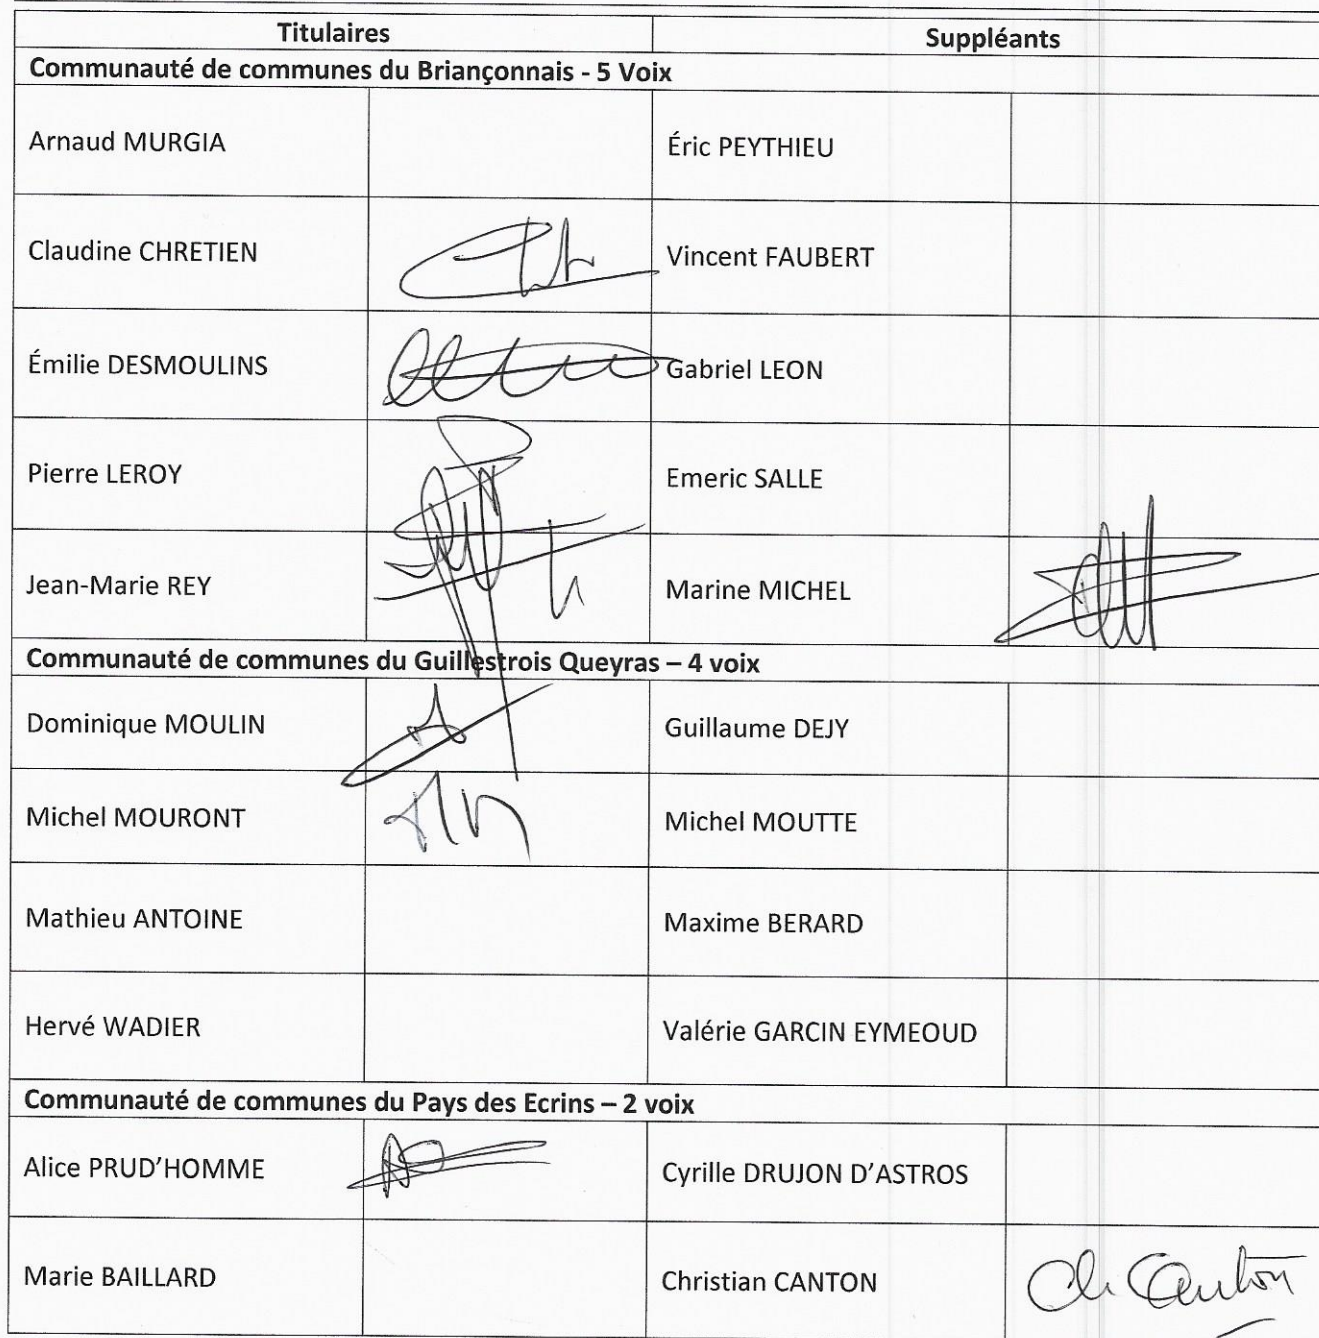 Titulaires Suppléants
Communauté de communes du Briançonnais - 5 Voix
Arnaud MURGIA Éric PEYTHIEU
Claudine CHRETIEN Vincent FAUBERT
Émilie DESMOULINS Gabriel LEON
Pierre LEROY Emeric SALLE
Jean-Marie REY Marine MICHEL
Communauté de communes du Guillestrois Queyras – 4 voix
Dominique MOULIN Guillaume DEJY
Michel MOURONT Michel MOUTTE
Mathieu ANTOINE Maxime BERARD
Hervé WADIER Valérie GARCIN EYMEOUD
Communauté de communes du Pays des Ecrins – 2 voix
Alice PRUD’HOMME Cyrille DRUJON D’ASTROS
Marie BAILLARD Christian CANTON Ch. Canton